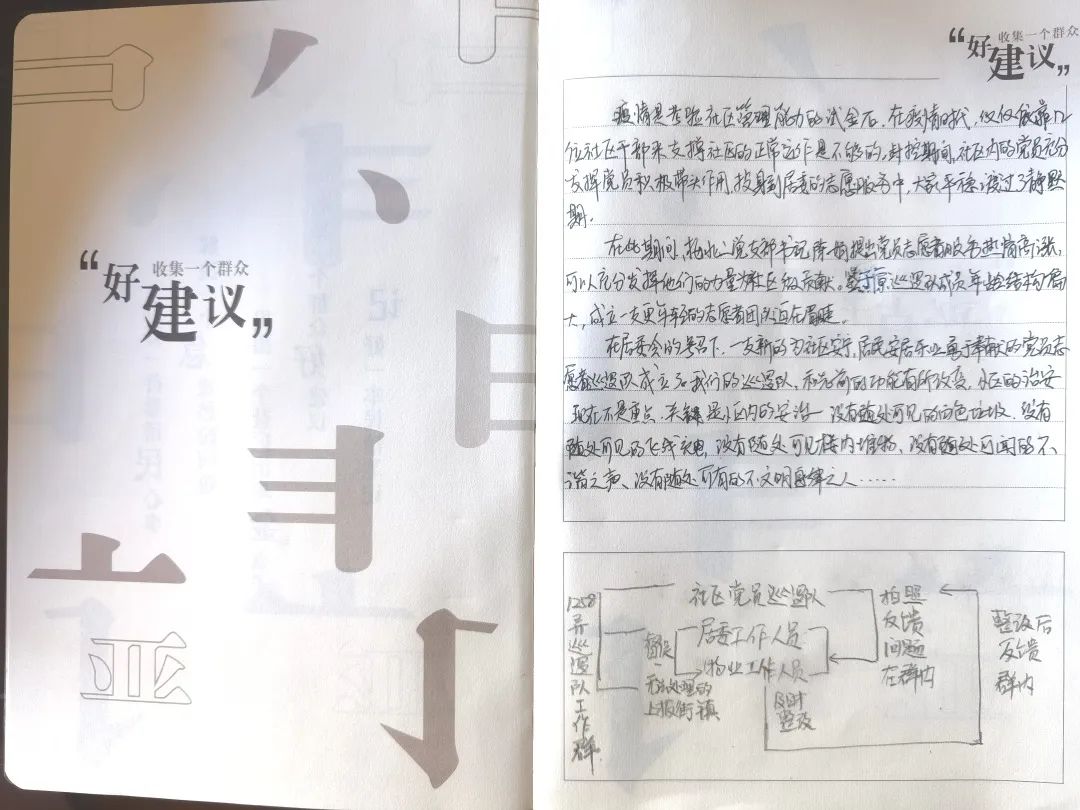 “好建议”
收集一个群众
“好建议”
收集一个群众
疫情是考验社区管理能力的试金石。在疫情时代，仅仅依靠几
位社区干部来支撑社区的正常运作是不够的。封控期间，社区内的党员充分
发挥党员积极带头作用，投身到居委的志愿服务中，大家平稳渡过了静默
期。
在此期间，二党支部书记陈提出党员志愿者服务热情高涨，
可以充分发挥他们的力量为社区做贡献。鉴于原巡逻队成员年龄结构偏
大，成立一支更年轻的志愿者团队迫在眉睫。
在居委会的号召下，一支新的为社区安宁、居民安居乐业勇于奉献的党员志
愿者巡逻队成立了。我们的巡逻队，和先前的功能有所改变，小区的治安
现在不是重点，关键是小区内的安治—没有随处可见的白色垃圾、没有
随处可见的飞线充电、没有随处可见楼内堆物、没有随处可闻的不
谐之声、没有随处可有的不文明之人……
1258
弄巡逻队工作群
社区党员巡逻队
居委工作人员
物业工作人员
无法处理的
上报街镇
及时
整改
拍照
反馈
问题
在群内
整改后
反馈
群内